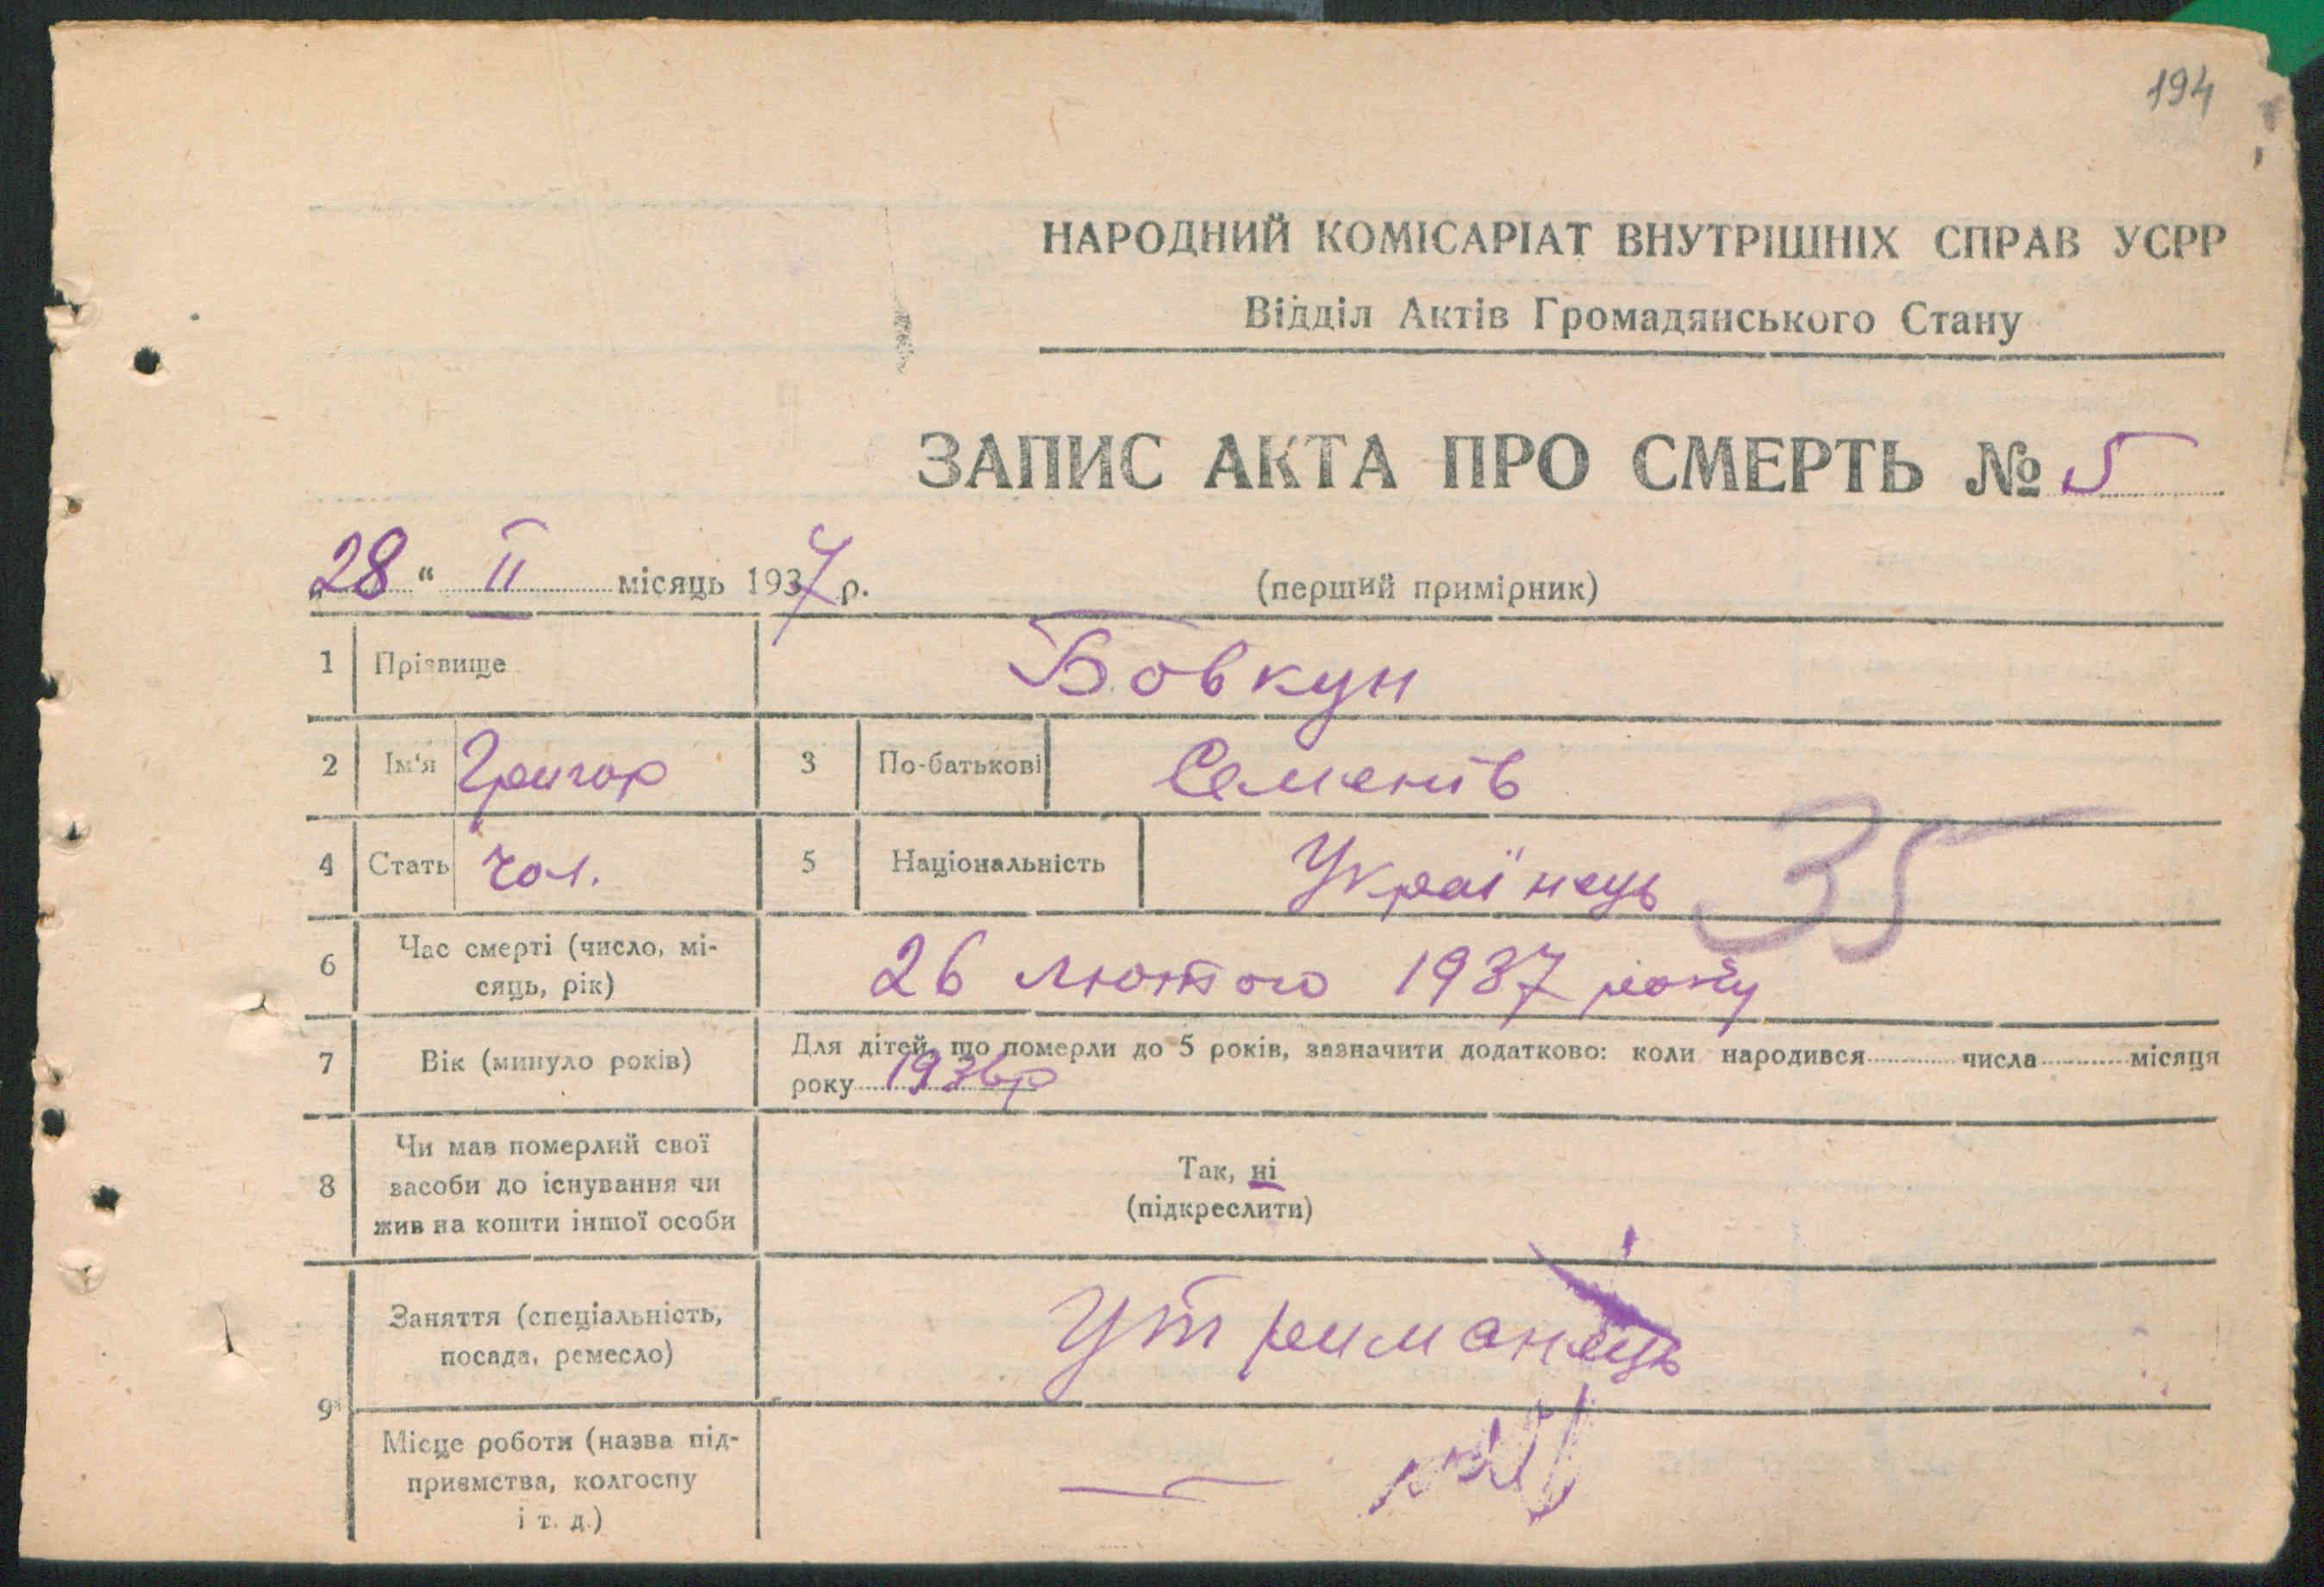 194
НАРОДНИЙ КОМІСАРІАТ ВНУТРІШНІХ СПРАВ УСРР
Відділ Актів Громадянського Стану
ЗАПИС АКТА ПРО СМЕРТЬ № 5
„28“ II місяць 1937 р. (перший примірник)
1 Прізвище Бовкун
2 Ім'я Григор 3 По-батькові Семенів
4 Стать чол. 5 Національність Українець 35
6 Час смерті (число, мі-
сяць, рік) 26 лютого 1937 року
7 Вік (минуло років) Для дітей, що померли до 5 років, зазначити додатково: коли народився числа місяця
року 1936р
8 Чи мав померлий свої
засоби до існування чи
жив на кошти іншої особи
Так, ні
(підкреслити)
9 Заняття (спеціальність,
посада, ремесло) Утриманець
Місце роботи (назва під-
приємства, колгоспу
і т. д.) —